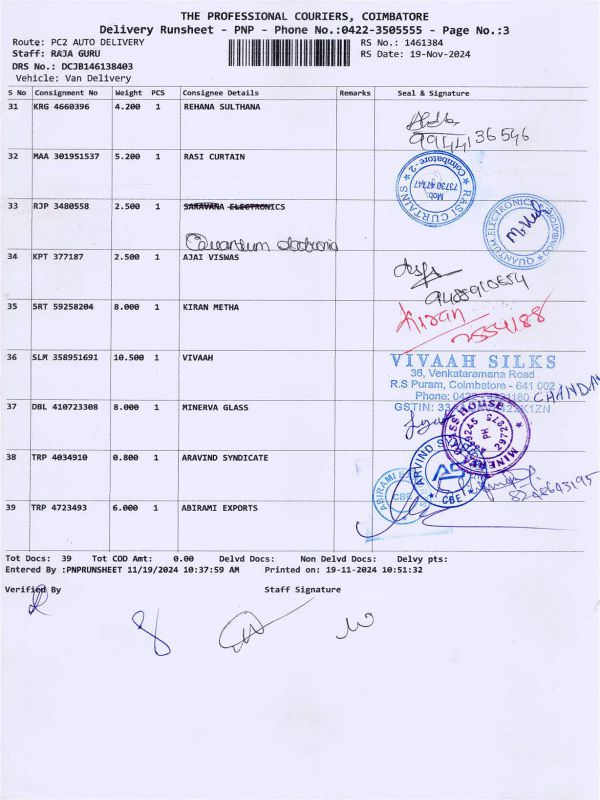 THE PROFESSIONAL COURIERS, COIMBATORE
Delivery Runsheet - PNP - Phone No.:0422-3505555 - Page No.:3
Route: PC2 AUTO DELIVERY RS No.: 1461384
Staff: RAJA GURU RS Date: 19-Nov-2024
DRS No.: DCJB146138403
Vehicle: Van Delivery
S No Consignment No Weight PCS Consignee Details Remarks Seal & Signature
31 KRG 4660396 4.200 1 REHANA SULTHANA
9944136546
32 MAA 301951537 5.200 1 RASI CURTAIN
RASI CURTAINS Coimbatore-2. Mob: 73730 47747
33 RJP 3480558 2.500 1 SARAVANA ELECTRONICS
Quantum electronics
QUANTUM ELECTRONICS
34 KPT 377187 2.500 1 AJAI VISWAS
35 SRT 59258204 8.000 1 KIRAN METHA
Kiran
2554188
36 SLM 358951691 10.500 1 VIVAAH
VIVAAH SILKS
36, Venkataramana Road
R.S Puram, Coimbatore - 641 002
Phone: 0422
GSTIN: 33
CHANDAN
37 DBL 410723308 8.000 1 MINERVA GLASS
MINERVA GLASS HOUSE
38 TRP 4034910 0.800 1 ARAVIND SYNDICATE
ARVIND AS CBE
39 TRP 4723493 6.000 1 ABIRAMI EXPORTS
ABIRAMI CBE
Tot Docs: 39 Tot COD Amt: 0.00 Delvd Docs: Non Delvd Docs: Delvy pts:
Entered By :PNPRUNSHEET 11/19/2024 10:37:59 AM Printed on: 19-11-2024 10:51:32
Verified By Staff Signature